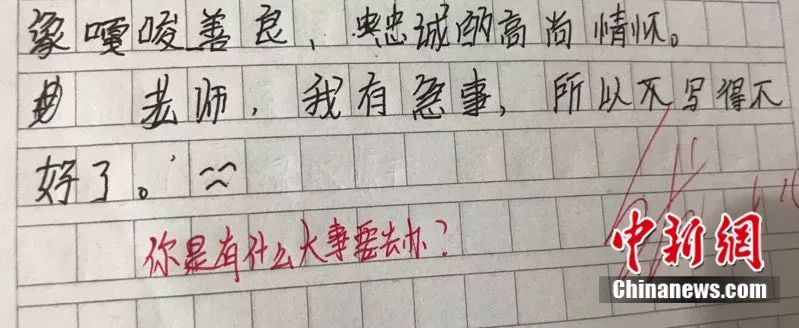 象嘎唆善良，忠诚的高尚情怀。
老师，我有急事，所以不写得不
好了。
你是有什么大事要去办？
中新網
Chinanews.com